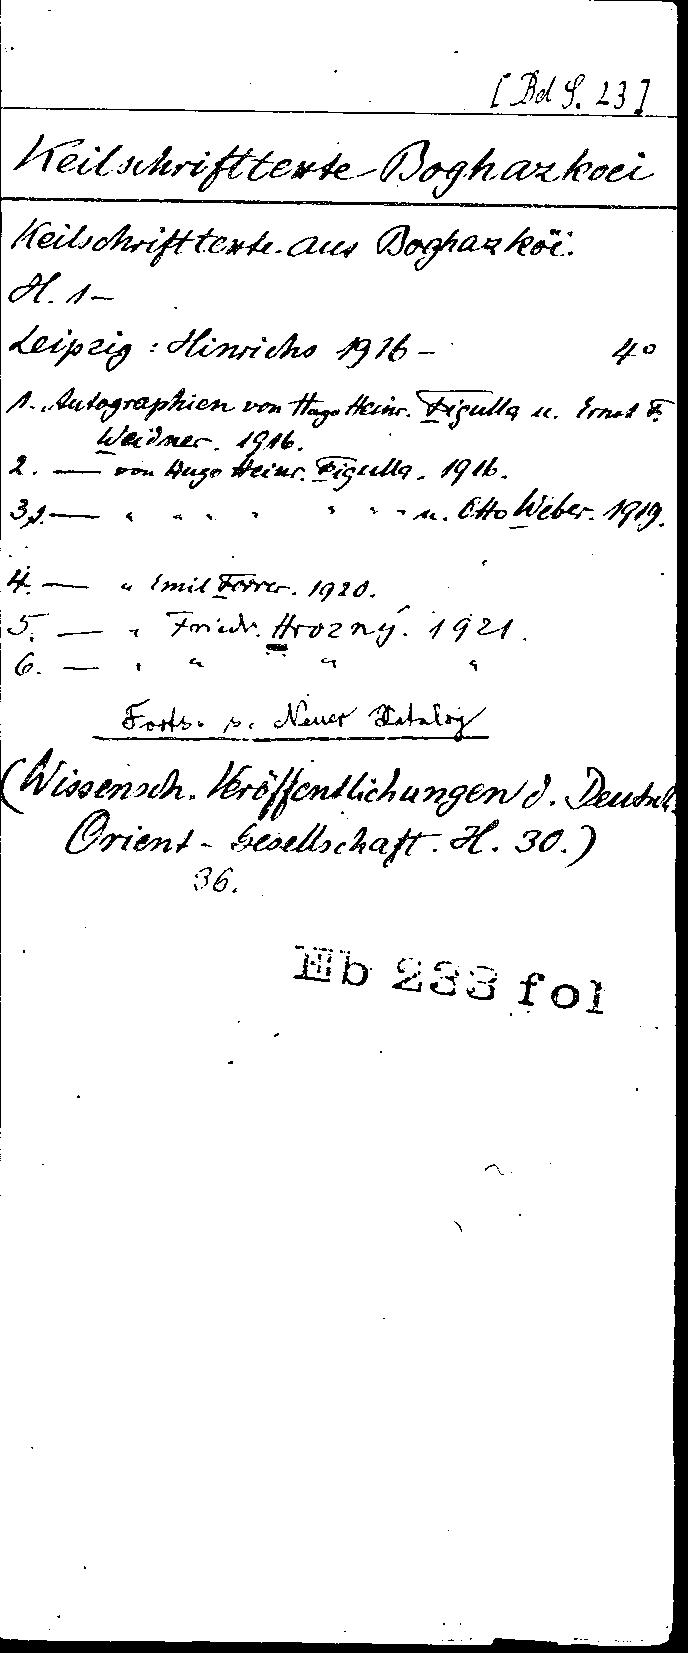 [Bd S. 23]
Keilschrifttexte Boghazkoei
Keilschrifttexte aus Boghazköi.
H. 1-
Leipzig: Hinrichs 1916- 4°
1. Autographien von Hugo Heinr. Figulla u. Ernst F.
Weidner. 1916.
2. — von Hugo Heinr. Figulla. 1916.
3. — " " " " " " " u. Otto Weber. 1919.
4. — " Emil Forrer. 1920.
5. — " Friedr. Hrozný. 1921.
6. — " " " "
Forts. s. Neuer Katalog
(Wissensch. Veröffentlichungen d. Deutsch.
Orient-Gesellschaft. H. 30.)
36.
Eb 233 fol